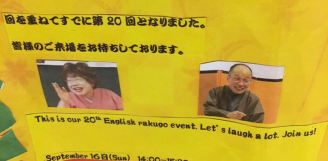 回を重ねてすでに第20回となりました。
皆様のご来場をお待ちしております。
This is our 20th English rakugo event. Let's laugh a lot. Join us!
September 16日(Sun) 14:00~15: